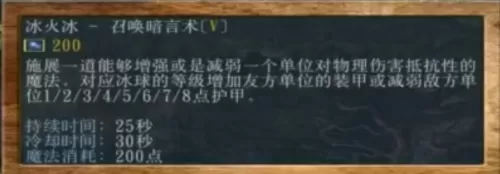 冰火冰 - 召唤暗言术[V]
200
施展一道能够增强或是减弱一个单位对物理伤害抵抗性的
魔法。对应冰球的等级增加友方单位的装甲或减弱敌方单
位1/2/3/4/5/6/7/8点护甲。
持续时间: 25秒
冷却时间: 30秒
魔法消耗: 200点